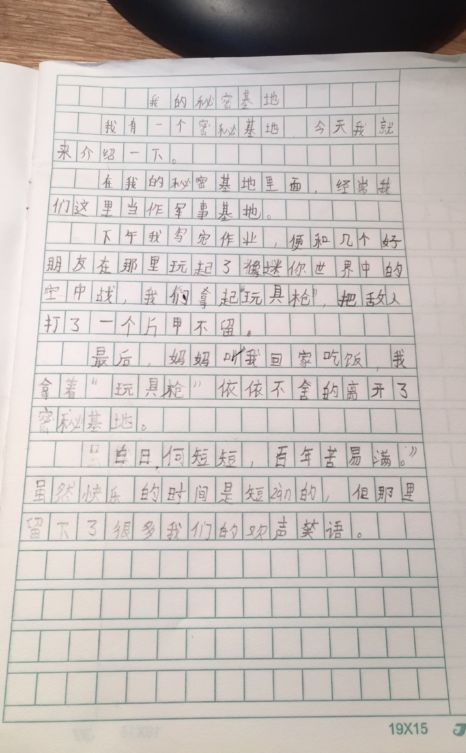 我的秘密基地
我有一个密秘基地,今天我就
来介绍一下。
在我的秘密基地里面,经常我
们这里当作军事基地。
下午我写完作业,便和几个好
朋友在那里玩起了像迷你世界中的
空中战,我们拿起“玩具枪”,把敌人
打了一个片甲不留。
最后,妈妈叫我回家吃饭,我
拿着“玩具枪”依依不舍的离开了
密秘基地。
白日何短短,百年苦易满。”
虽然快乐的时间是短zàn的,但那里
留下了很多我们的欢声笑语。
19X15